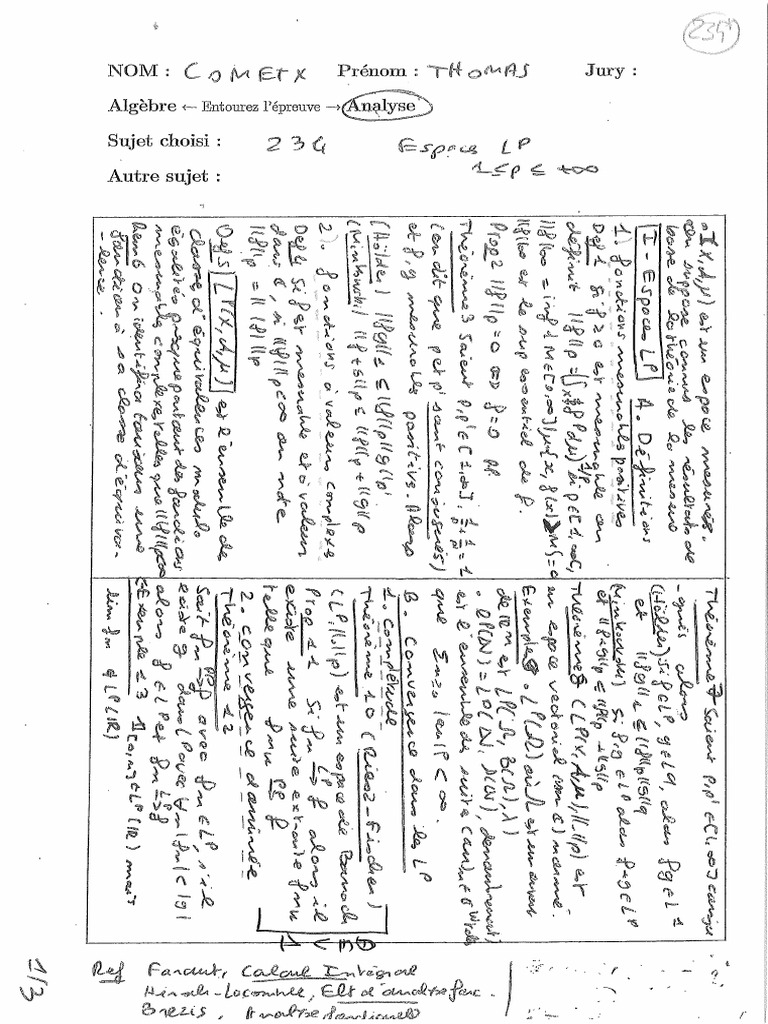 234
NOM : COMETX Prénom : THOMAS Jury :
Algèbre ← Entourez l'épreuve → Analyse
Sujet choisi : 234 Espaces LP
1≤p≤+∞
Autre sujet :
(X,A,μ) est un espace mesuré.
on suppose connus les résultats de
base de la théorie de la mesure
I - Espaces LP A. Définitions
1) fonctions mesurables positives
Def 1 Si f≥0 est mesurable on
définit ||f||p = (∫x f^p dμ)^1/p si p∈[1,∞[
||f||∞ = inf{M∈[0,∞] μ{x, f(x)>M}=0
||f||∞ est le sup essentiel de f.
Prop 2 ||f||p=0 ⟺ f=0 pp
Théorème 3 Soient p,p'∈[1,∞]: 1/p+1/p'=1
(on dit que p et p' sont conjugués)
et f,g mesurables positives. Alors
(Hölder) ||fg||1 ≤ ||f||p||g||p'
(Minkowski) ||f+g||p ≤ ||f||p+||g||p
2). fonctions à valeurs complexes
Def 4 Si f est mesurable et à valeur
dans C, si ||f||p<∞ on note
||f||p = || |f| ||p
Def 5 LP(X,A,μ) est l'ensemble des
classes d'équivalences modulo
égalités presque partout des fonctions
mesurables complexes telles que ||f||p<∞
Rem 6 on identifiera toujours une
fonction à sa classe d'équiva-
-lence.
Théorème 7 Soient p,p'∈[1,∞] conju-
-gués alors
(Hölder) Si f∈LP, g∈Lq, alors fg∈L1
et ||fg||1 ≤ ||f||p||g||q
(Minkowski) Si f,g∈LP alors f+g∈LP
et ||f+g||p ≤ ||f||p+||g||p
Théorème 8 (LP(X,A,μ),||.||p) est
un espace vectoriel (sur C) normé.
Exemple 9 . LP(Ω) où Ω est un ouvert
de Rn est LP(Ω,B(Ω),λ)
. lP(N)=LP(N,P(N), dénombrement)
est l'ensemble des suites (un)n∈ telles
que Σn≥0 |un|P<∞.
B. Convergence dans les LP
1. Complétude
Théorème 10 (Riesz-Fischer)
(LP,||.||p) est un espace de Banach
Prop 11 Si fn →LP f alors il
existe une suite extraite fnk
telle que fnk →PP f
2. convergence dominée
Théorème 12
Soit fn →PP f avec fn∈LP, s'il
existe g dans LP avec ∀n |fn|≤|g|
alors f∈LP et fn →LP f
Exemple 13 1[0,n]∈LP(R) mais
lim fn ∉LP(R)
DEV1
Ref Faraut, Calcul Intégral
Hirsch-Lacombe, Elt d'analyse fonc.
Brezis, Analyse fonctionnelle
1/3